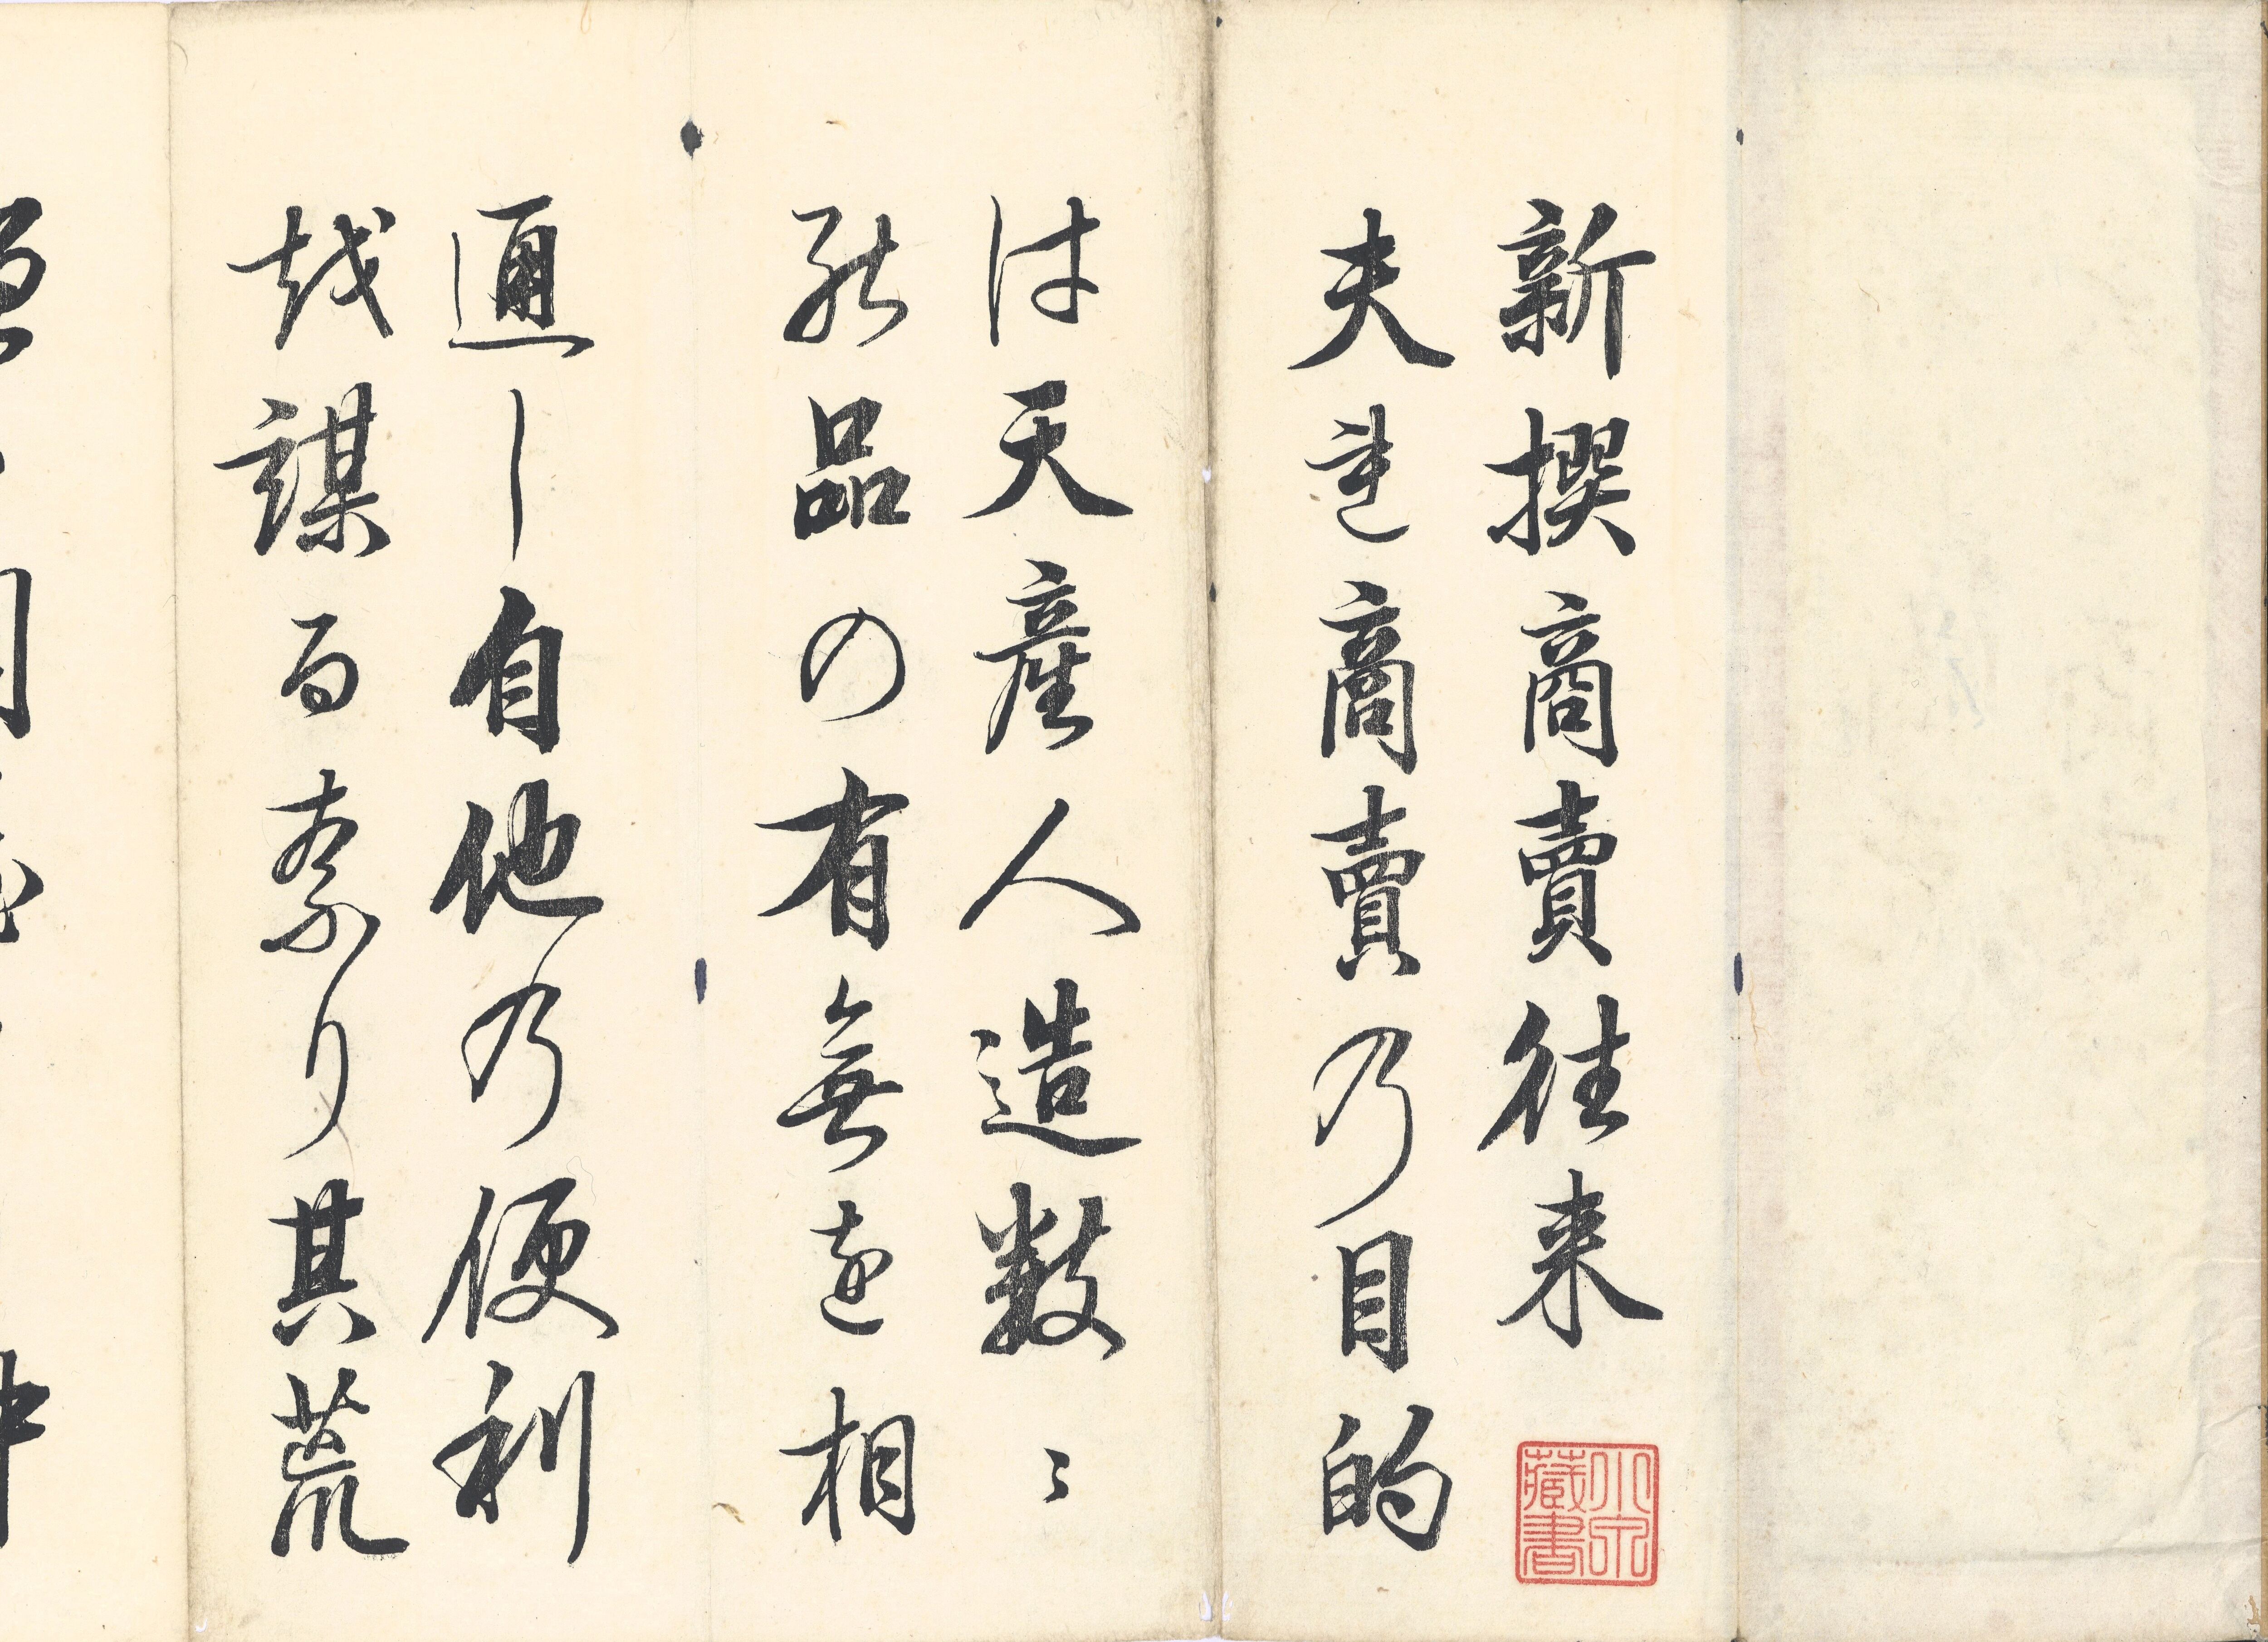 新撰商賣往来
夫連商賣乃目的
は天産人造数〻
能品の有無を相
通し自他乃便利
越謀る奈り其荒
小泉藏書